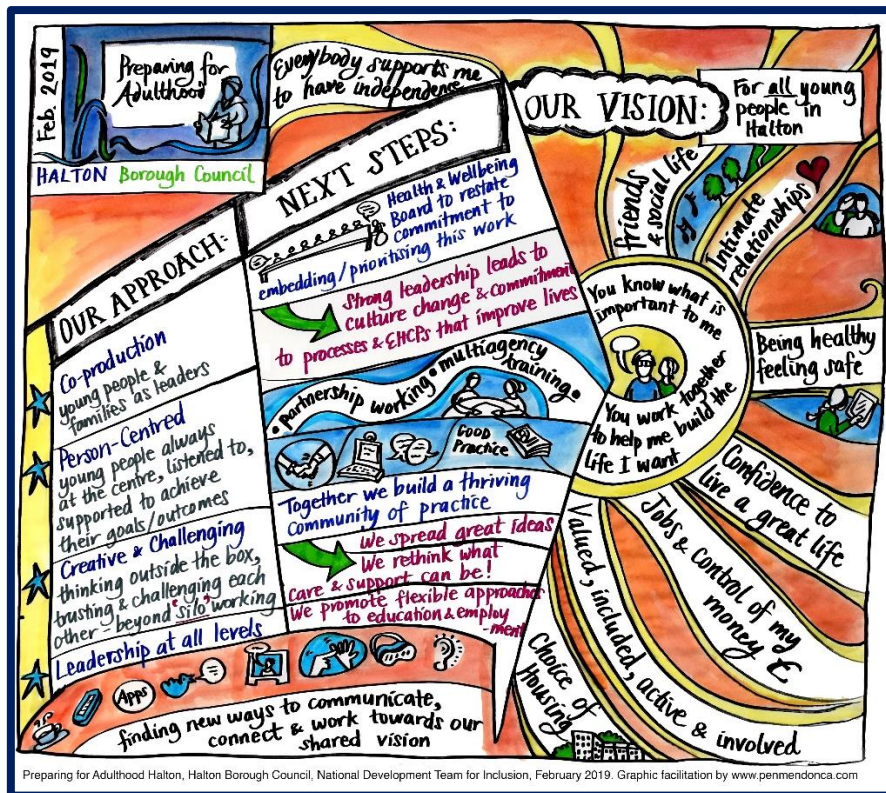 Feb. 2019
Preparing for
Adulthood
HALTON Borough Council
Everybody supports me
to have independence
OUR VISION:
For all young
people in
Halton
OUR APPROACH:
Co-production
young people &
families as leaders
Person-Centred
young people always
at the centre, listened to,
supported to achieve
their goals/outcomes
Creative & Challenging
thinking outside the box,
trusting & challenging each
other - beyond 'silo' working
Leadership at all levels
NEXT STEPS:
Health & Wellbeing
Board to restate
commitment to
embedding/prioritising this work
Strong leadership leads to
culture change & commitment
to processes & EHCPs that improve lives
• partnership working • multiagency
training •
GOOD
PRACTICE
Together we build a thriving
community of practice
We spread great ideas
We rethink what
care & support can be!
We promote flexible approaches
to education & employ
-ment
Apps
finding new ways to communicate,
connect & work towards our
shared vision
You know what is
important to me
You work together
to help me build the
life I want
friends
& social life
Intimate
relationships
Being healthy
feeling safe
Confidence to
live a great life
Jobs & control of my
money £
Valued, included, active & involved
Choice of
Housing
Preparing for Adulthood Halton, Halton Borough Council, National Development Team for Inclusion, February 2019. Graphic facilitation by www.penmendonca.com